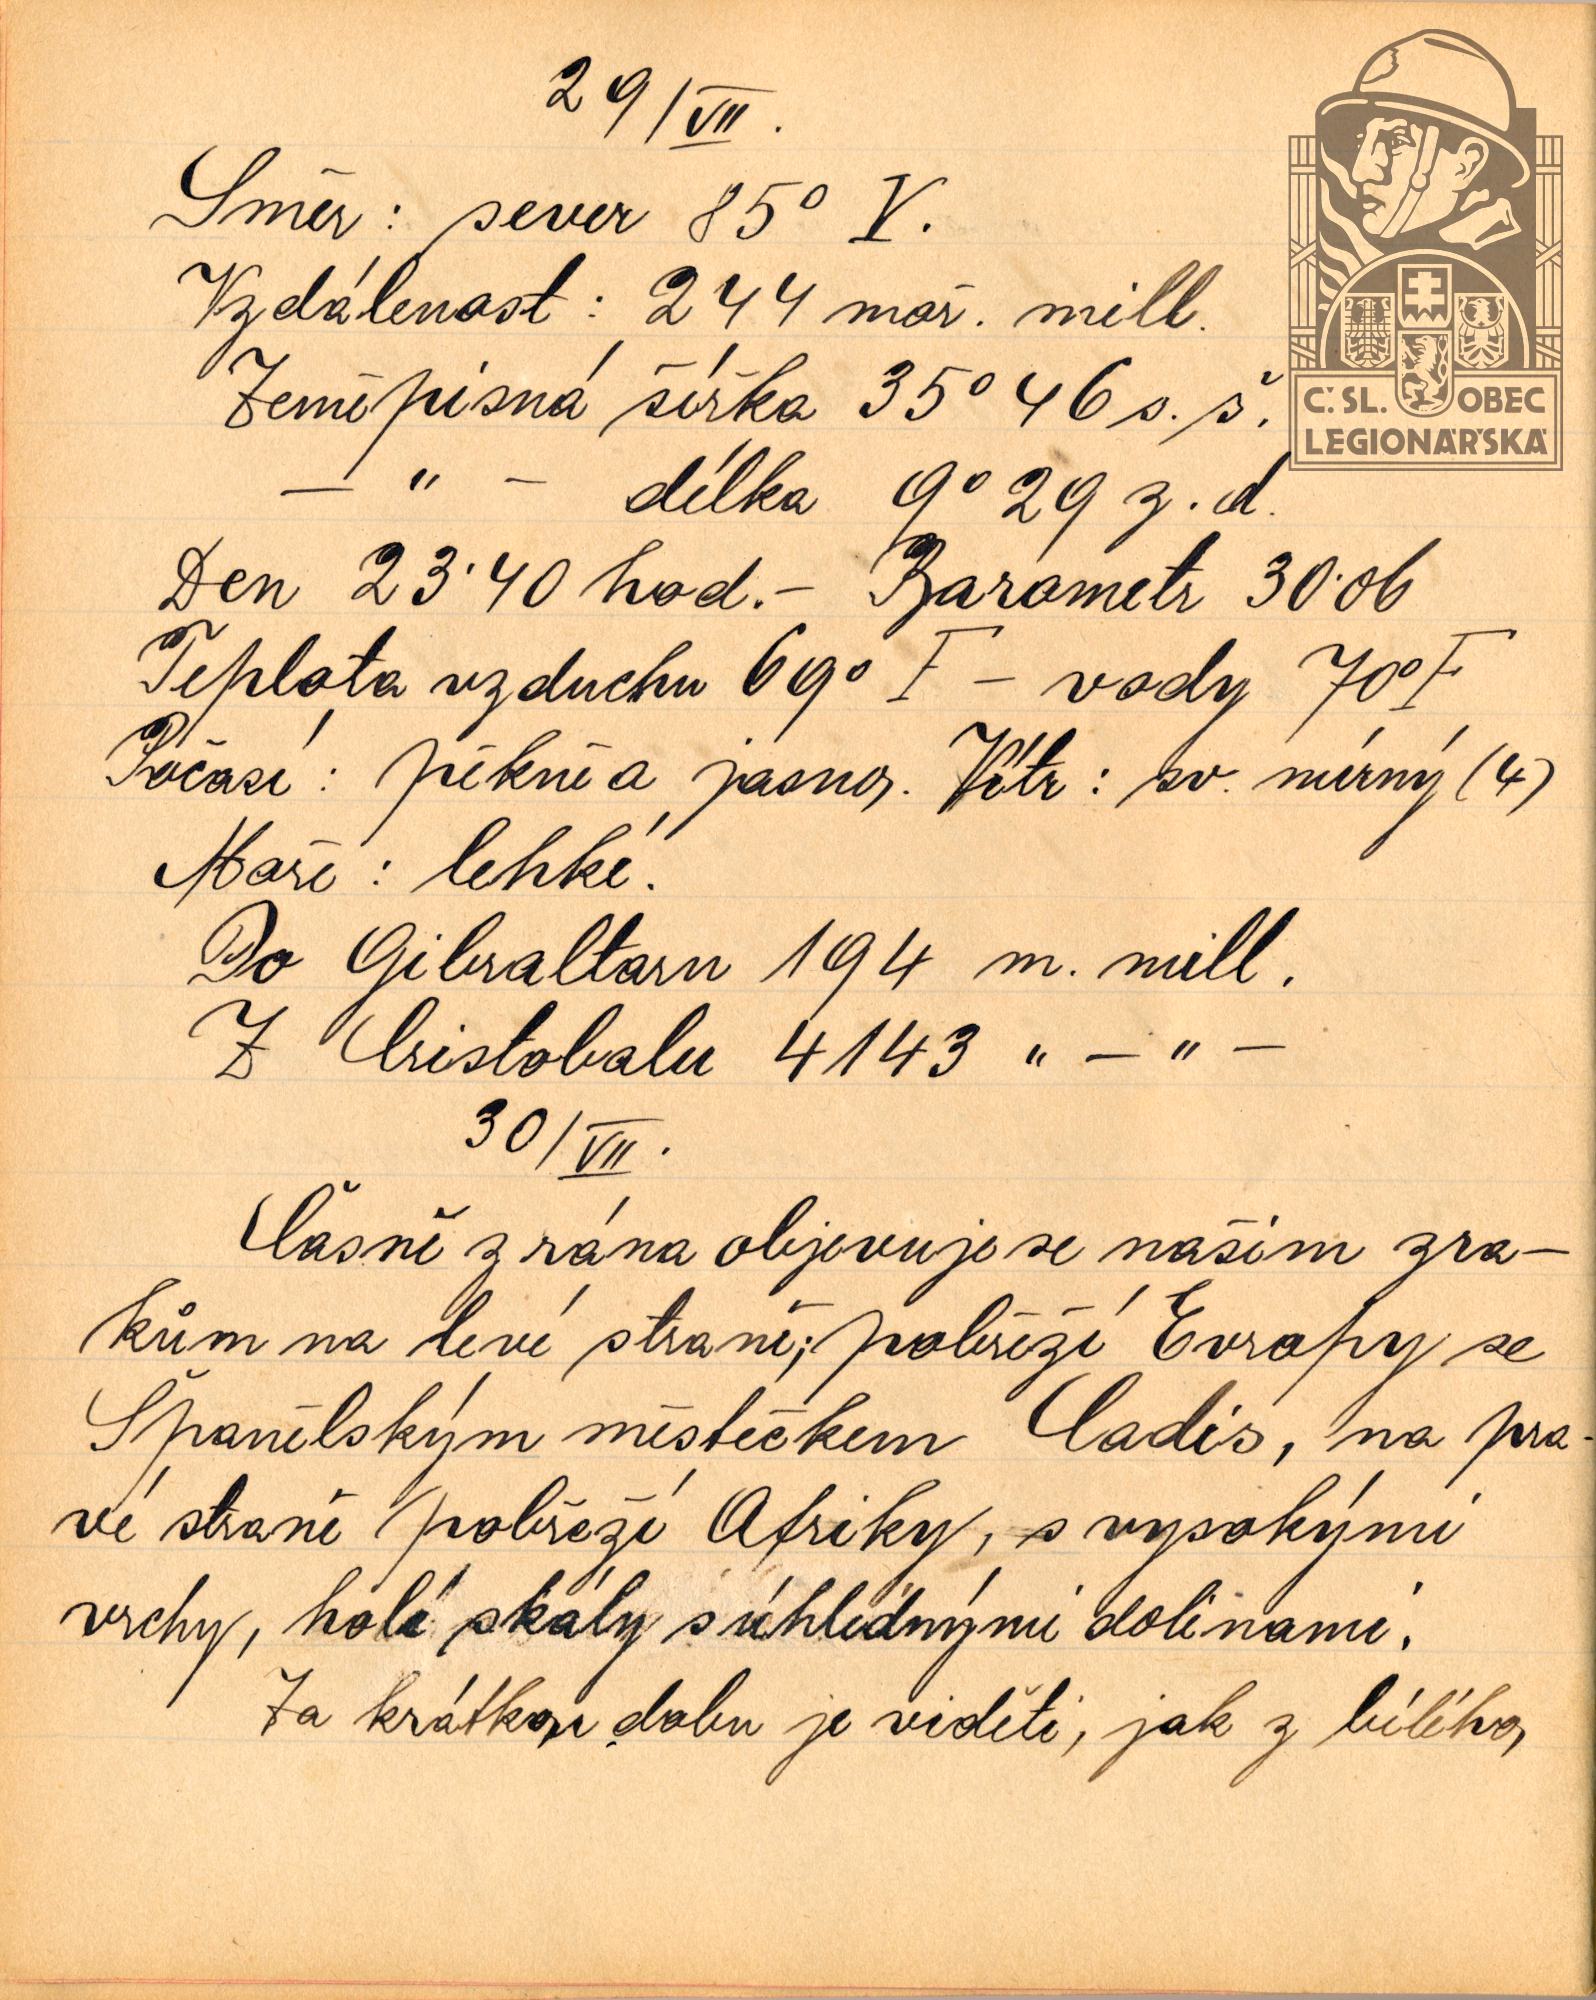 29/VII.
Směr: sever 85° V.
Vzdálenost: 244 moř. mill.
Zeměpisná šířka 35° 46 s. š.
— " — délka 9° 29 z. d.
Den 23·40 hod. – Barometr 30·06
Teplota vzduchu 69° F – vody 70° F
Počasí: pěkné a jasno. Vítr: sv. mírný (4)
Moře: lehké.
Do Gibraltaru 194 m. mill.
Z Cristobalu 4143 " — " —
30/VII.
Časně z rána objevuje se našim zra-
kům na levé straně; pobřeží Evropy se
Španělským městečkem Cadis, na pra-
vé straně pobřeží Afriky, s vysokými
vrchy, holé skály s úhlednými dolinami.
Za krátkou dobu je viděti, jak z bílého,
Č. SL. OBEC
LEGIONÁŘSKÁ